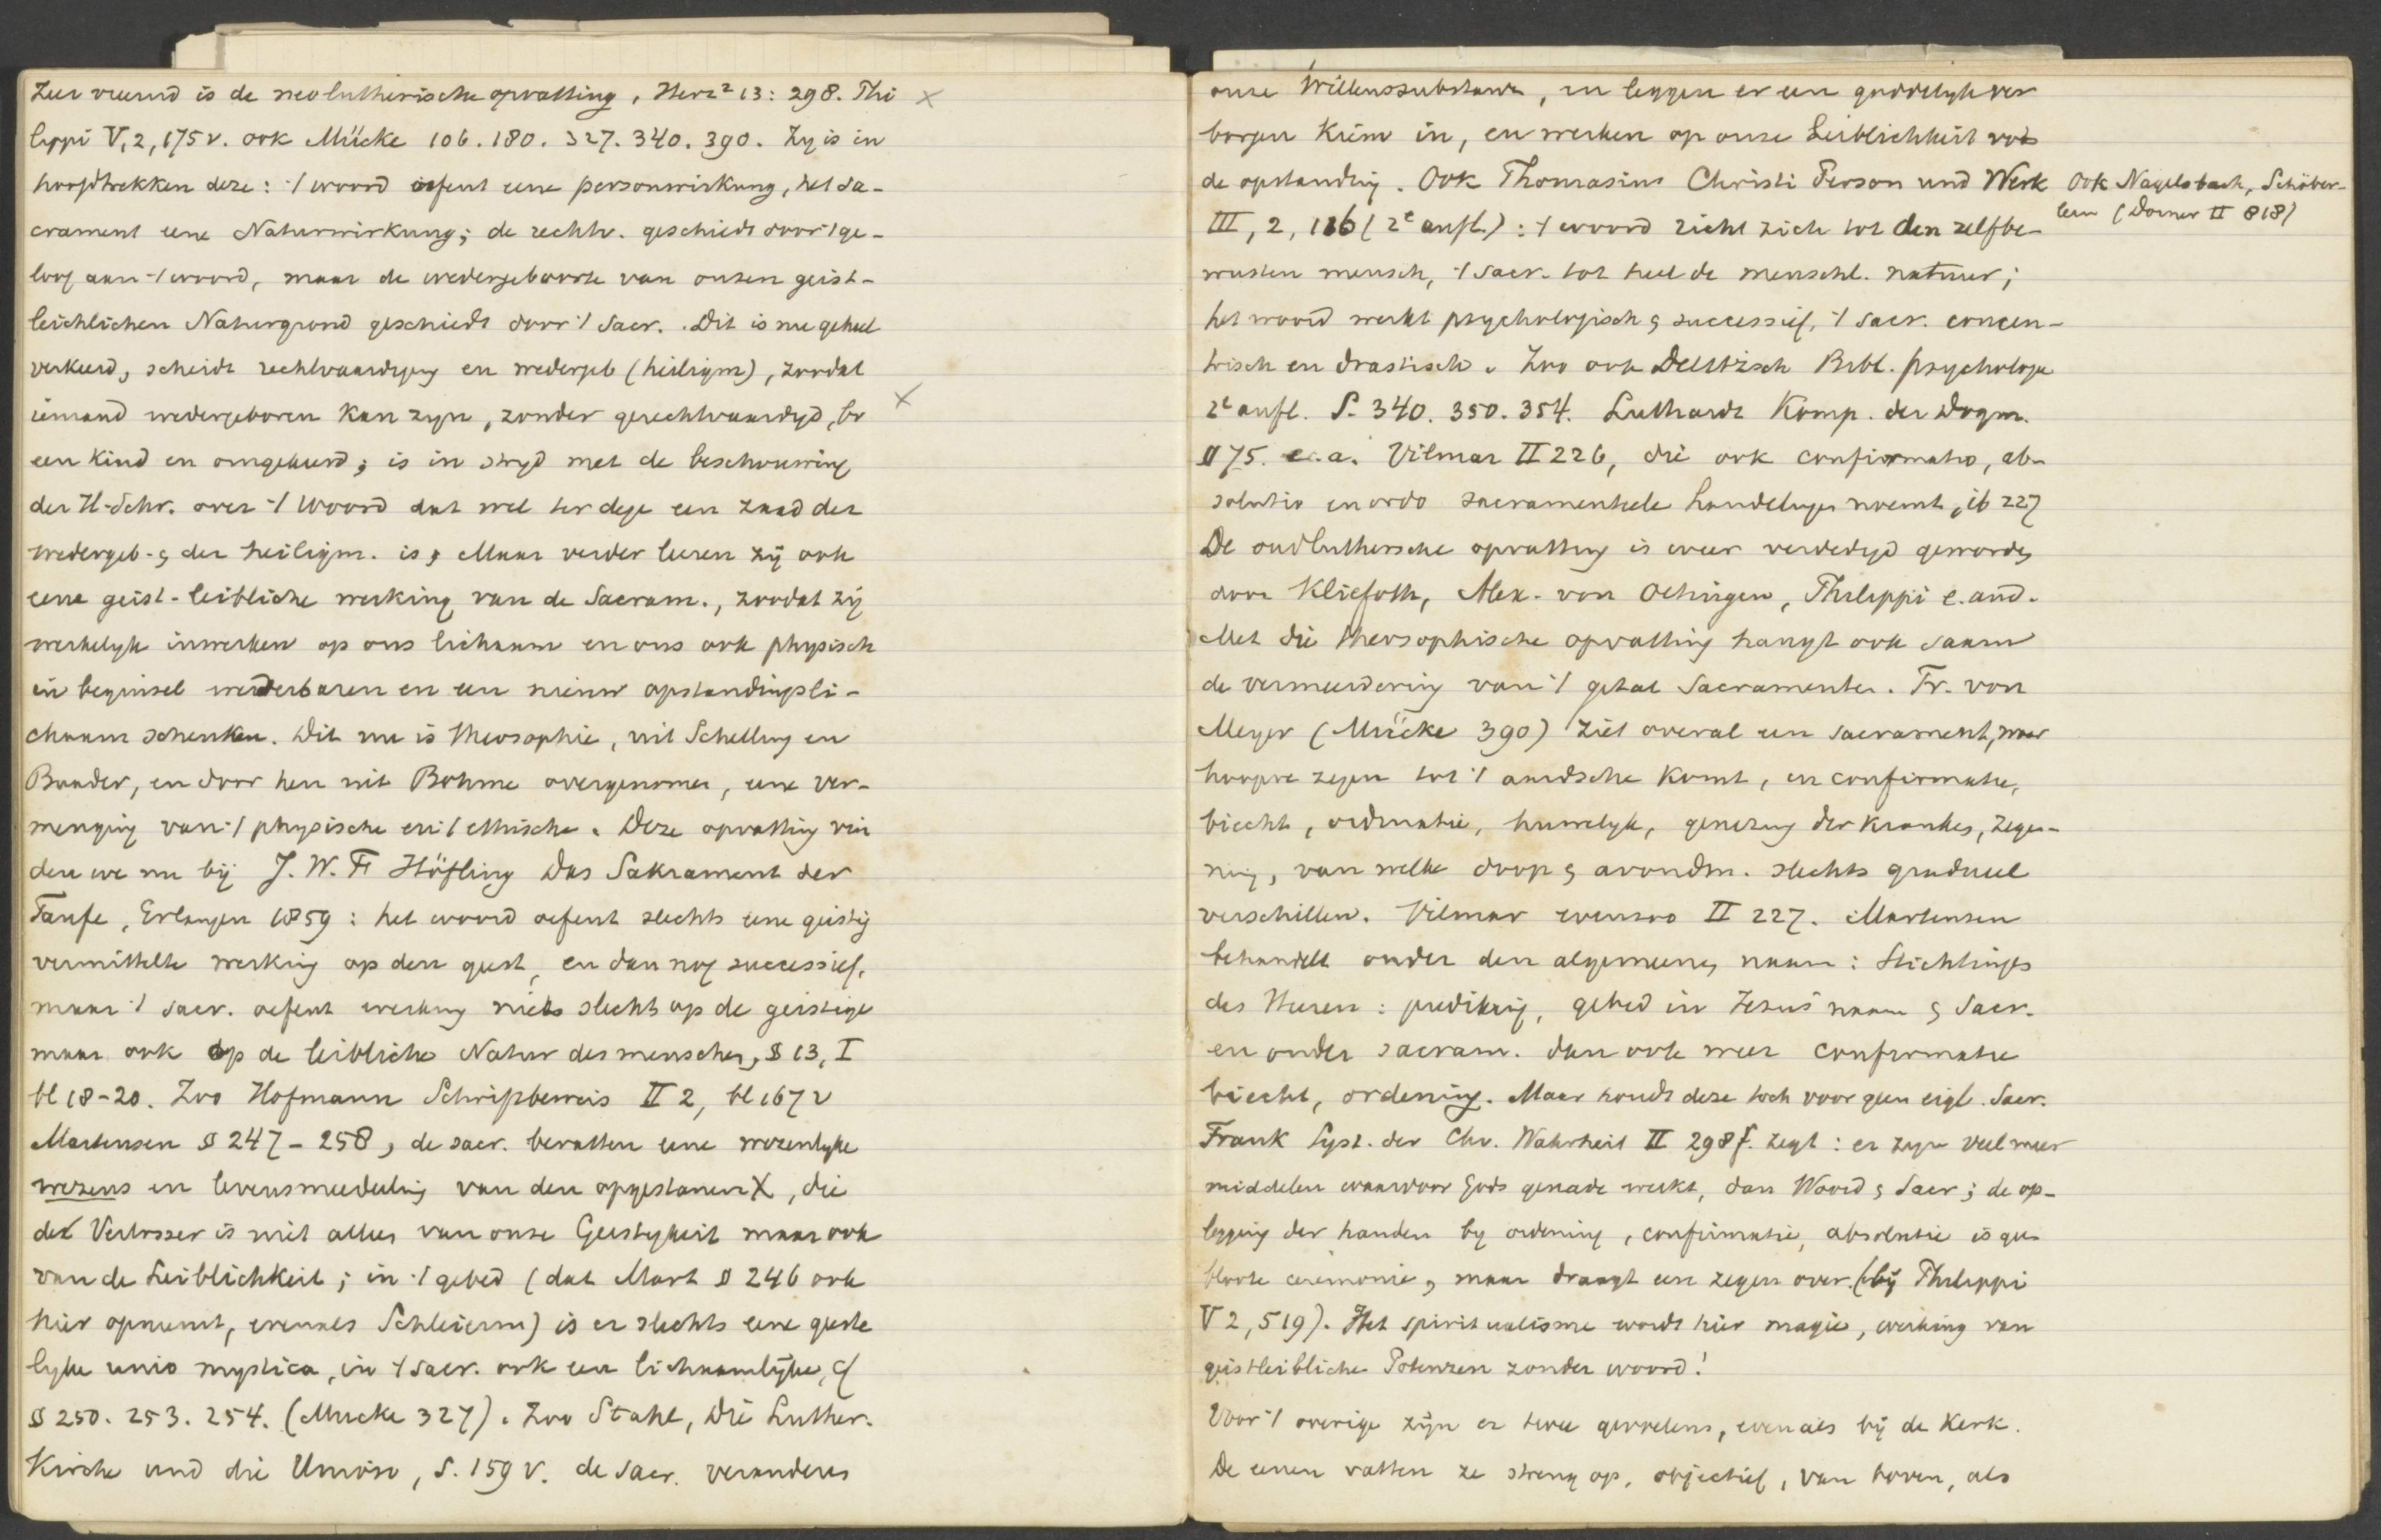 Zeer vreemd is de neolutherische opvatting, Herz² 13: 298. Phi
lippi V, 2, 175 v. ook Mücke 106. 180. 327. 340. 390. Zij is in
hoofdtrekken deze: 't woord oefent eene personwirkung, het sa-
crament eene Naturwirkung; de rechtv. geschiedt door 't ge-
loof aan 't woord, maar de wedergeboorte van onzen geist-
leiblichen Naturgrond geschiedt door 't Sacr. Dit is nu geheel
verkeerd, scheidt rechtvaardiging en wedergeb (heiligm), zoodat
iemand wedergeboren kan zijn, zonder gerechtvaardigd, bv
een kind en omgekeerd; is in strijd met de beschouwing
der H. Schr. over 't Woord dat wel ter dege een zaad der
wedergeb. & der heiligm. is, Maar verder leeren zij ook
eene geist-leibliche werking van de Sacram., zoodat zij
werkelijk inwerken op ons lichaam en ons ook physisch
in beginsel wederbaren en een nieuw opstandingsli-
chaam schenken. Dit nu is theosophie, uit Schelling en
Baader, en door hen uit Bohme overgenomen, eene ver-
menging van 't physische en 't ethische. Deze opvatting vin
den we nu bij J. W. F. Höfling Das Sakrament der
Taufe, Erlangen 1859: het woord oefent slechts eene geistig
vermittelte werking op den geest, en dan nog successief,
maar 't sacr. oefent werking niet slechts op de geistige
maar ook op de leibliche Natur des menschen, § 13, I
bl 18-20. Zoo Hofmann Schriftbeweis II 2, bl 167 v
Martensen § 247 - 258, de sacr. bevatten eene wezenlijke
wezens en levensmededeeling van den opgestanen X, die
de Verlosser is niet alleen van onze Geistigkeit maar ook
van de Leiblichkeit; in 't gebed (dat Mart § 246 ook
hier opneemt, evenals Schleierm) is er slechts eene geeste
lijke unio mystica, in 't sacr. ook een lichamelijke, cf
§ 250. 253. 254. (Mucke 327). Zoo Stahl, Die Luther.
Kirche und die Union, S. 159 v. de sacr. veranderen
onze Willenssubstanz, en leggen er een goddelijk ver
borgen Kiem in, en werken op onze Leiblichkeit voor
de opstanding. Ook Thomasius Christi Person und Werk
III, 2, 116 (2e aufl.): 't woord richt zich tot den zelfbe-
wusten mensch, 't sacr. tot heel de menschl. natuur;
het woord werkt psychologisch & successief, 't sacr. concen-
trisch en drastisch. Zoo ook Delitzsch Bibl. psychologie
2e aufl. S. 340. 350. 354. Luthardt Komp. der Dogm.
§ 75. e.a. Vilmar II 226, die ook confirmatio, ab-
solutio en ordo sacramenteele handelingen noemt, ib 227
De oudluthersche opvatting is weer verdedigd geworden
door Kliefoth, Alex. von Oetingen, Philippi e. and.
Met die theosophische opvatting hangt ook saam
de vermeerdering van 't getal Sacramenten. Fr. von
Meyer (Mücke 390) ziet overal een sacrament, waar
hoogere zegen tot 't aardsche komt, en confirmatie,
biecht, ordinatie, huwelijk, genezing der kranken, zege-
ning, van welke doop & avondm. slechts gradueel
verschillen. Vilmar evenzoo II 227. Martensen
behandelt onder den algemeenen naam: Stichtingen
des Heeren: prediking, gebed in Jezus' naam & Sacr.
en onder sacram. dan ook weer confirmatie
biecht, ordening. Maar houdt deze toch voor geen eigl. Sacr.
Frank Syst. der Chr. Wahrheit II 298 f. zegt: er zijn veel meer
middelen waardoor Gods genade werkt, dan Woord & Sacr; de op-
legging der handen bij ordening, confirmatie, absolutie is geen
bloote ceremonie, maar draagt een zegen over. (bij Philippi
V 2, 519). Het spiritualisme wordt hier magie, werking van
geistleibliche Potenzen zonder woord!
Voor 't overige zijn er twee gevoelens, evenals bij de Kerk.
De eenen vatten ze streng op, objectief, van boven, als
Ook Nagelsbach, Schöber-
lein (Dorner II 818)